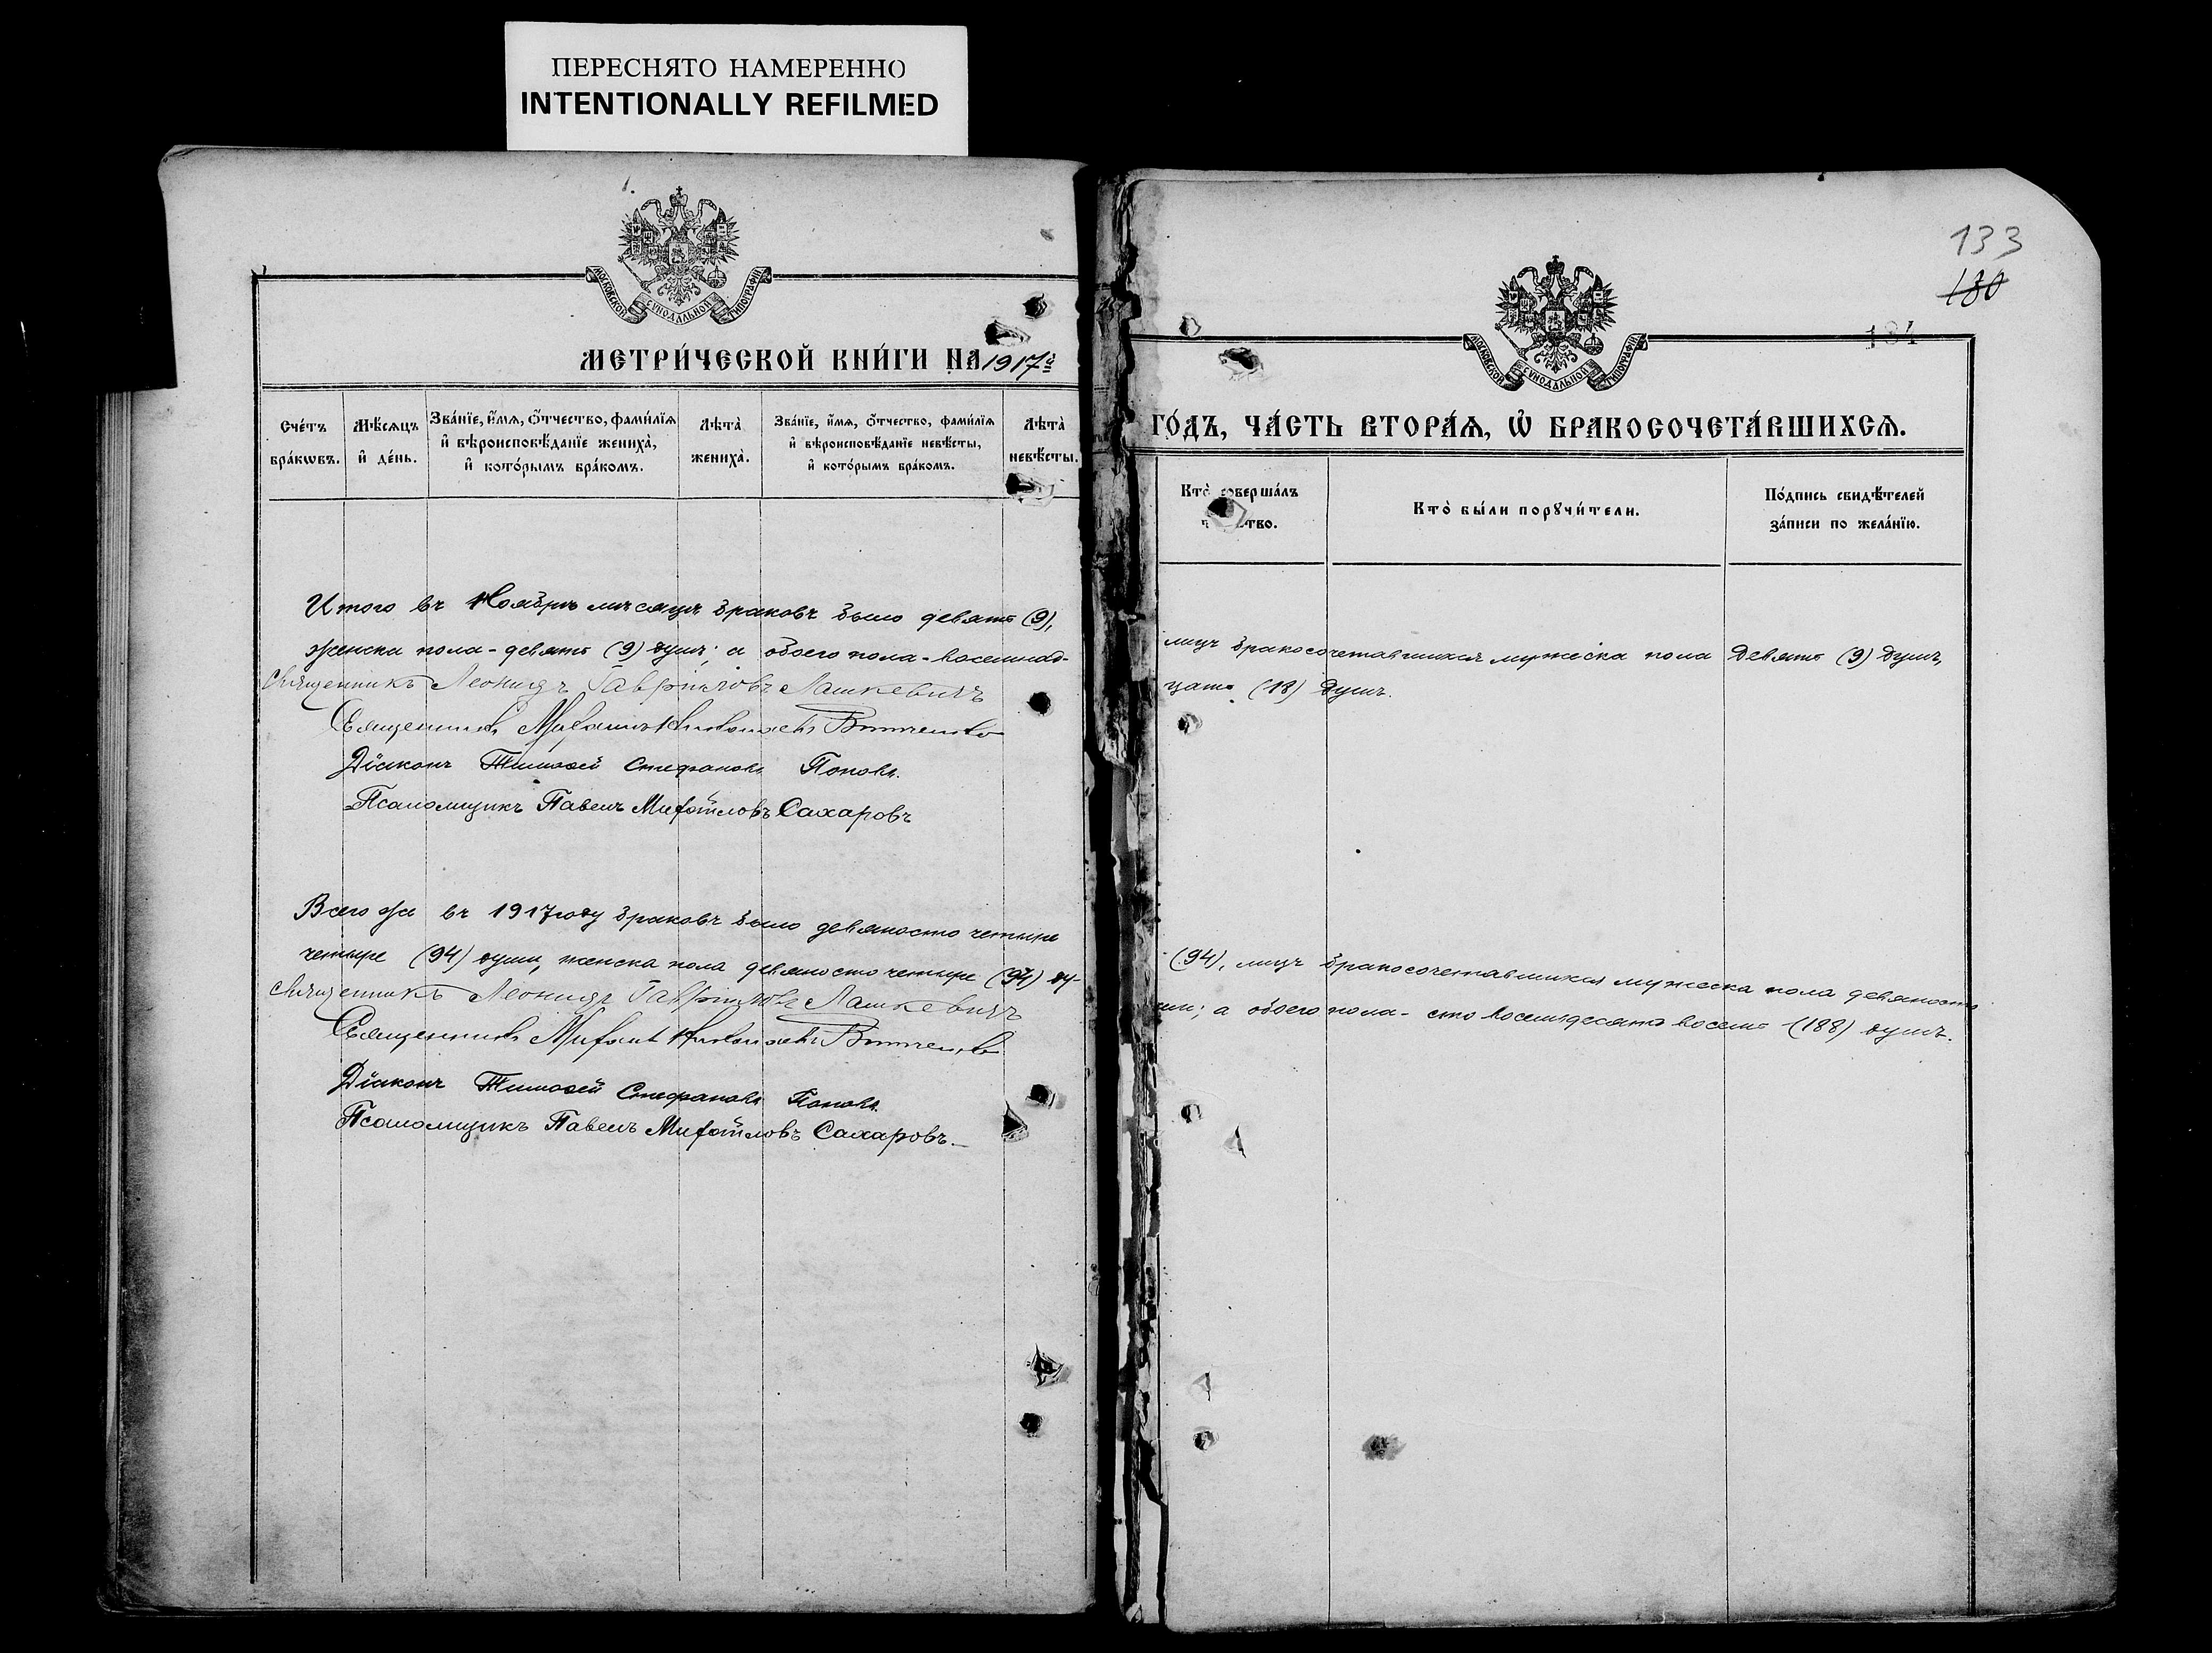 ПЕРЕСНЯТО НАМЕРЕННО
INTENTIONALLY REFILMED
МОСКОВСКОЙ СѴНОДАЛЬНОЙ ТИПОГРАФІИ
МЕТРИ́ЧЕСКОЙ КНИ́ГИ НА 1917й
Сче́тъ бра́кѡвъ.
Мѣ́сяцъ и҆ де́нь.
Зва́нїе, и҆́мѧ, ѻ҆́тчество, фами́лїѧ и҆ вѣроисповѣ́данїе жениха̀, и҆ кото́рымъ бра́комъ.
Лѣта̀ жениха̀.
Зва́нїе, и҆́мѧ, ѻ҆́тчество, фами́лїѧ и҆ вѣроисповѣ́данїе невѣ́сты, и҆ кото́рымъ бра́комъ.
Лѣта̀ невѣ́сты.
Итого въ Ноябрѣ мѣсяцѣ браковъ было девять (9),
женска пола - девять (9) душъ; а обоего пола - восемнад-
Священникъ Леонидъ Гавриловъ Лашкевичъ
Священникъ Михаилъ
Дiаконъ Тимофей Стефановъ Поповъ.
Псаломщикъ Павелъ Михайловъ Сахаровъ
Всего же въ 1917 году браковъ было девяносто четыре
четыре (94) души, женска пола девяносто четыре (94) ду-
Священникъ Леонидъ Гавриловъ Лашкевичъ
Священникъ Михаилъ
Дiаконъ Тимофей Стефановъ Поповъ.
Псаломщикъ Павелъ Михайловъ Сахаровъ.
133
130
134
МОСКОВСКОЙ СѴНОДАЛЬНОЙ ТИПОГРАФІИ
ГО́ДЪ, ЧА́СТЬ ВТОРА́Ѧ, Ѡ҆ БРАКОСОЧЕТА́ВШИХСѦ.
Кто̀ соверша́лъ
Кто̀ бы́ли порꙋчи́тели.
По́дпись свидѣ́телей за́писи по жела́нїю.
лицъ бракосочетавшихся мужеска пола девять (9) душъ,
цать (18) душъ.
(94), лицъ бракосочетавшихся мужеска пола девяносто
ши; а обоего пола - сто восемьдесятъ восемь (188) душъ.